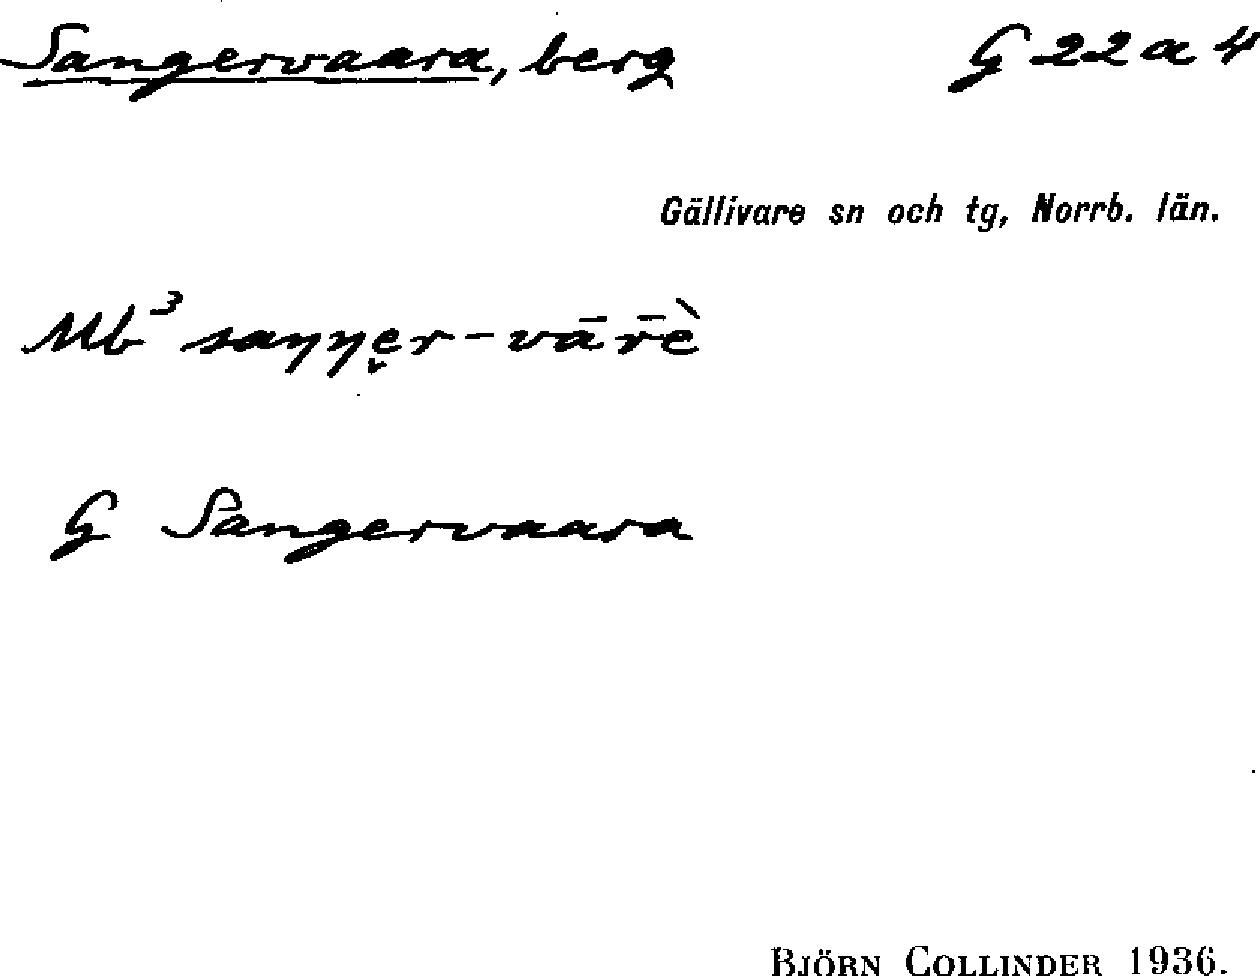 Sangervaara, berg G 22 a 4
Gällivare sn och tg, Norrb. län.
Mb³ saŋŋe̬r-vā̀r̄è
G Sangervaara
BJÖRN COLLINDER 1936.